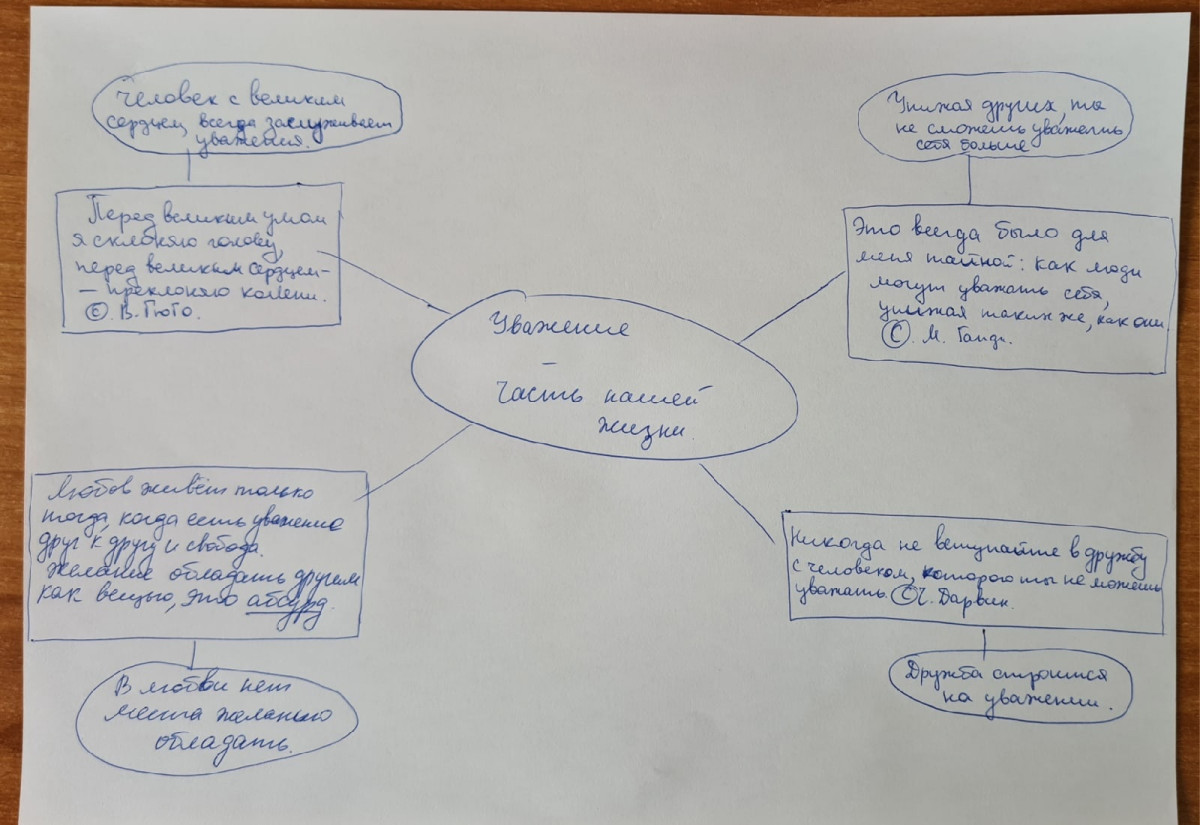 Человек с великим
сердцем, всегда заслуживает
уважения.
Перед великим умом
я склоняю голову,
перед великим сердцем –
– преклоняю колени.
© В. Гюго.
Унижая других, ты
не сможешь уважать
себя больше
Это всегда было для
меня тайной: как люди
могут уважать себя,
унижая таких же, как они
© М. Ганди.
Уважение
–
часть нашей
жизни.
Любов живёт только
тогда, когда есть уважение
друг к другу и свобода.
Желание обладать другим
как вещью, это абсурд.
В любви нет
места желанию
обладать.
Никогда не вступайте в дружбу
с человеком, которого ты не можешь
уважать. © Ч. Дарвин.
Дружба строится
на уважении.